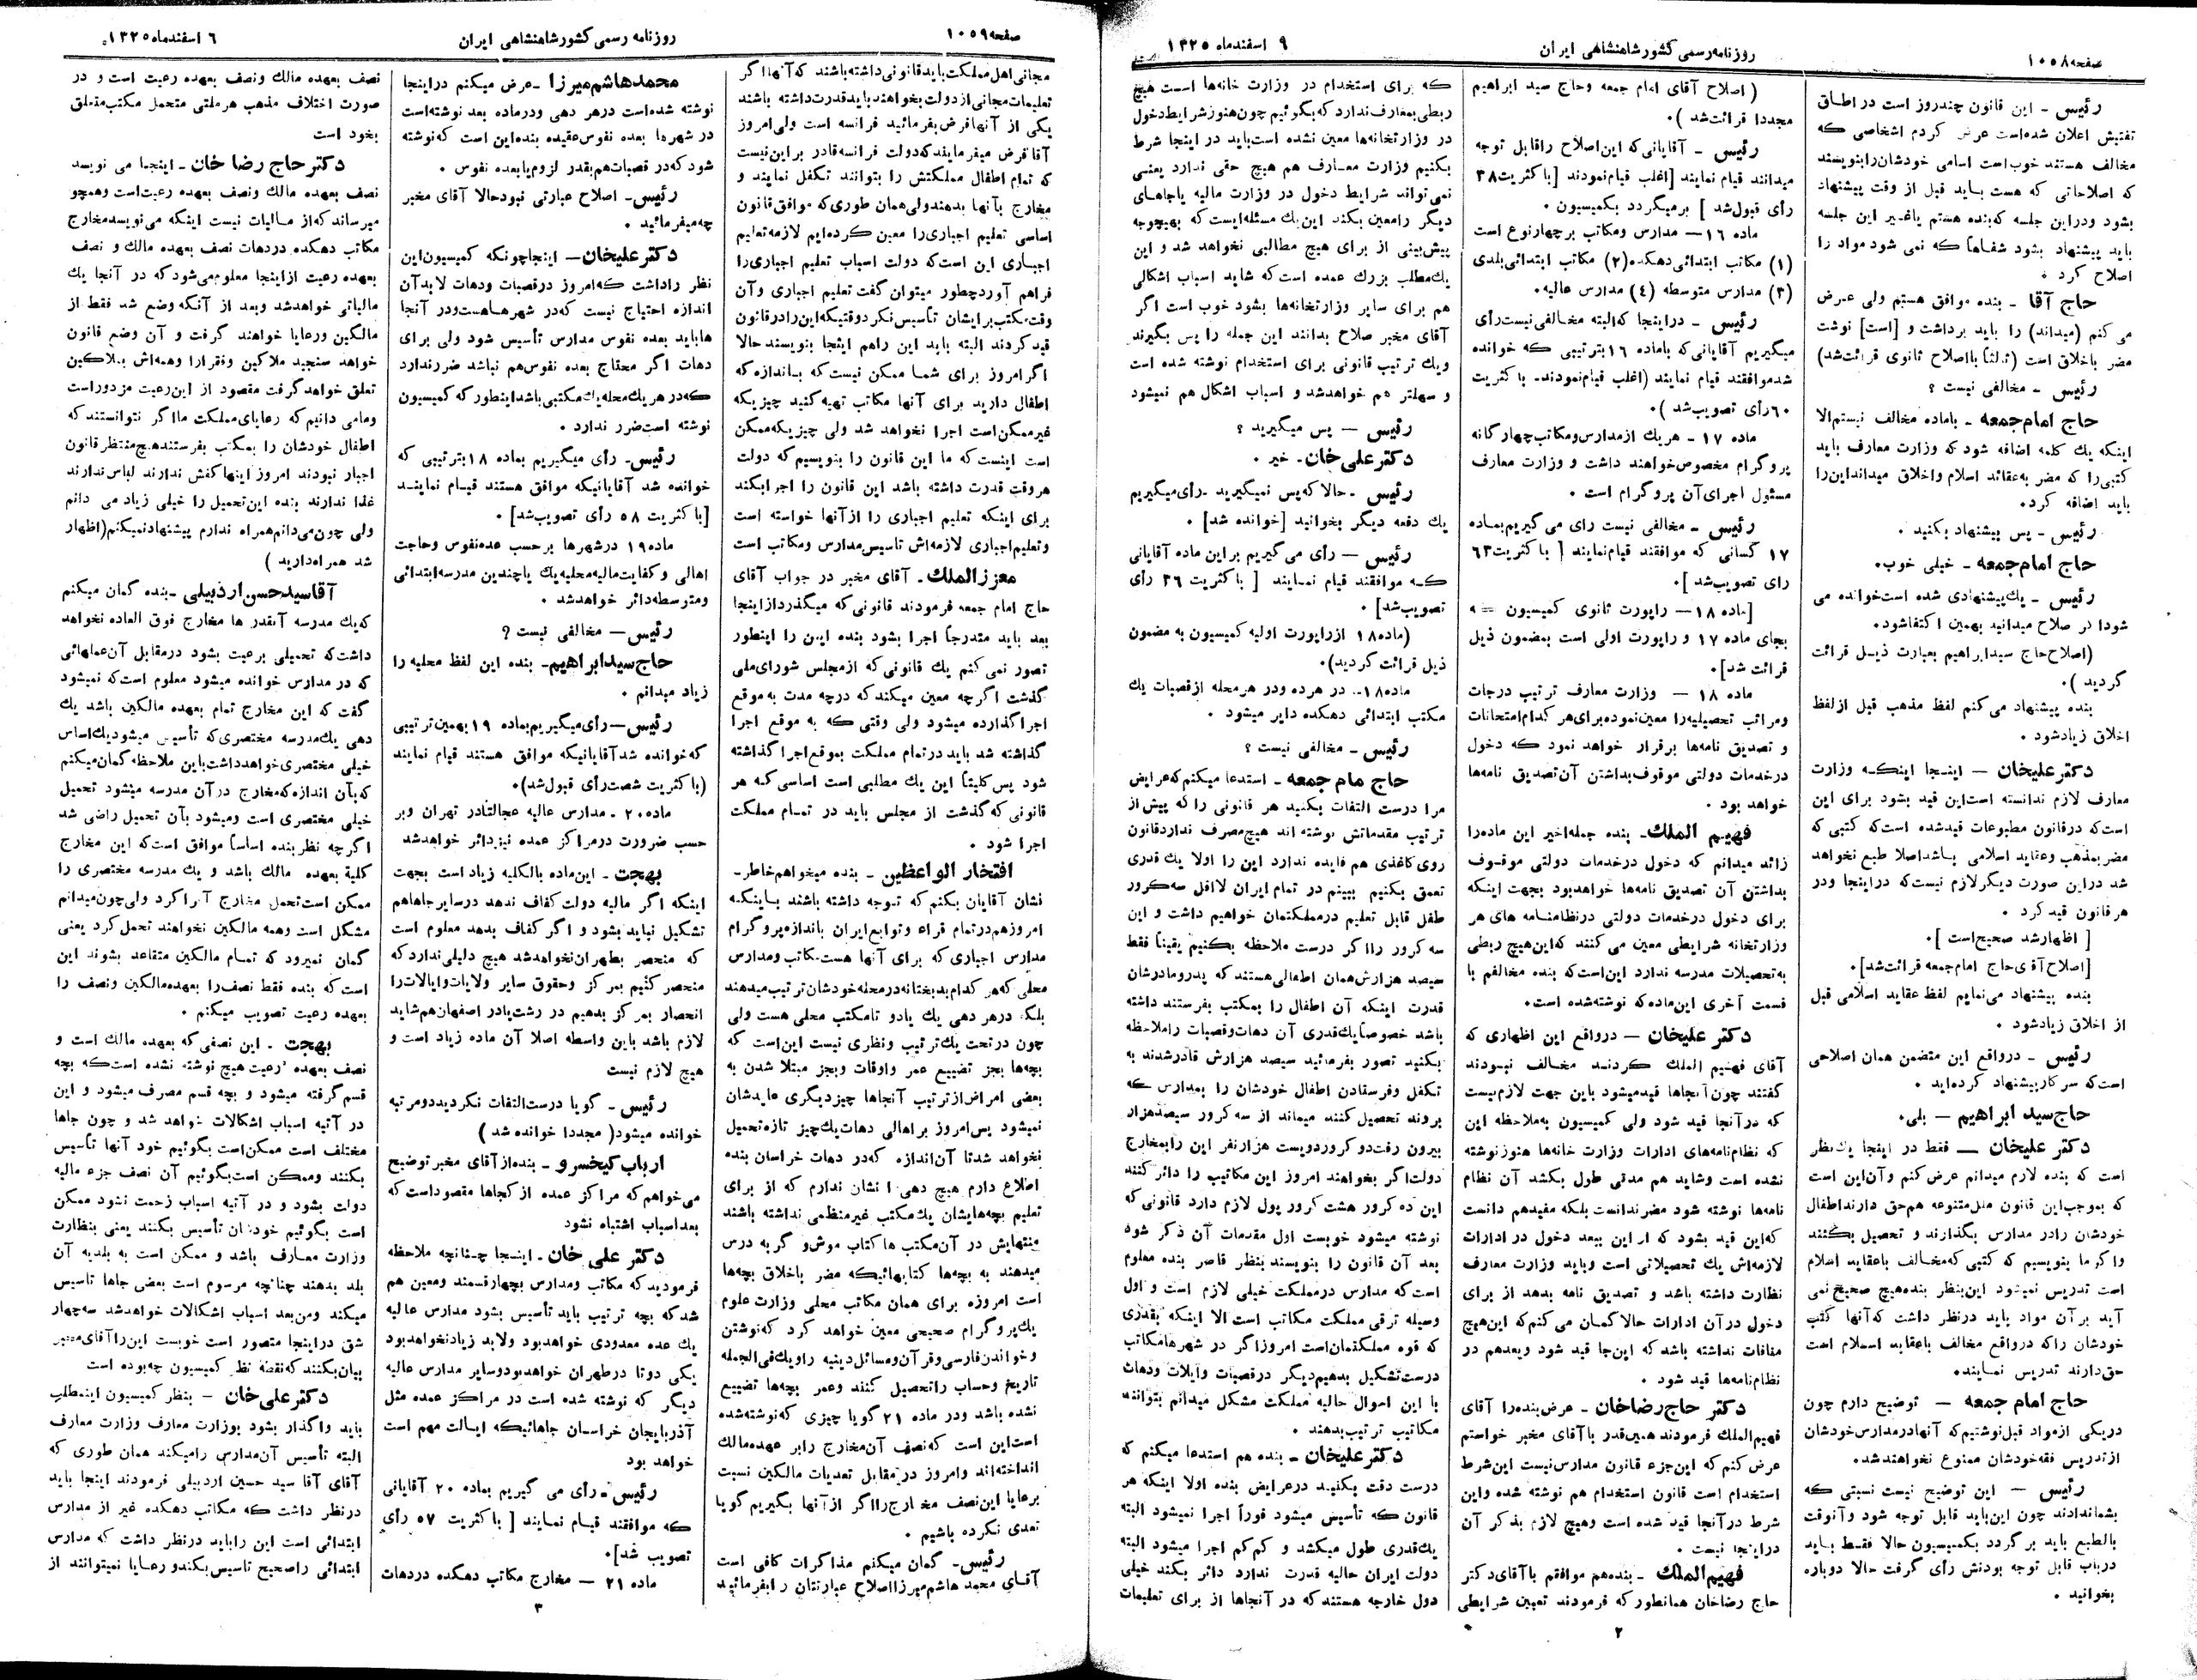 صفحه ۱۰۵۸
روزنامه رسمی کشور شاهنشاهی ایران
۹ اسفندماه ۱۳۲۵
رئیس - این قانون چندروز است در اطاق
تفتیش اعلان شده‌است عرض کردم اشخاصی که
مخالف هستند خوب است اسامی خودشان را بنویسند
که اصلاحاتی که هست باید قبل از وقت پیشنهاد
بشود ودراین جلسه که بنده هستم یاغیر این جلسه
باید پیشنهاد بشود شفاهاً که نمی شود مواد را
اصلاح کرد .
حاج آقا - بنده موافق هستم ولی عرض
می کنم (میداند) را باید برداشت و [است] نوشت
مضر باخلاق است (ثالثاً بااصلاح ثانوی قرائت‌شد)
رئیس - مخالفی نیست ؟
حاج امام جمعه - باماده مخالف نیستم‌الا
اینکه یك کلمه اضافه شود که وزارت معارف باید
کتبی‌را که مضر به‌عقائد اسلام واخلاق میداند‌این‌را
باید اضافه کرد.
رئیس - پس پیشنهاد بکنید .
حاج امام‌جمعه - خیلی خوب.
رئیس - یك‌پیشنهادی شده است‌خوانده می
شود‌اگر صلاح میدانید بهمین اکتفاشود.
(اصلاح‌حاج سیدابراهیم بعبارت ذیل قرائت
گردید ).
بنده پیشنهاد می‌کنم لفظ مذهب قبل ازلفظ
اخلاق زیادشود .
دکتر علیخان - اینجا اینکه وزارت
معارف لازم ندانسته است‌این قید بشود برای این
است‌که درقانون مطبوعات قیدشده است‌که کتبی که
مضربمذهب وعقاید اسلامی باشداصلا طبع نخواهد
شد دراین صورت دیگر‌لازم نیست‌که دراینجا ودر
هرقانون قید‌کرد .
[ اظهارشد صحیح‌است ].
[اصلاح‌آقای‌حاج امام‌جمعه قرائت‌شد].
بنده پیشنهاد می‌نمایم لفظ عقاید اسلامی قبل
از اخلاق زیادشود .
رئیس - درواقع این متضمن همان اصلاحی
است‌که سرکارپیشنهاد کرده‌اید .
حاج سید ابراهیم - بلی.
دکتر علیخان - فقط در اینجا یك‌نظر
است که بنده لازم میدانم عرض کنم وآن‌این است
که بموجب‌این قانون ملل‌متنوعه هم‌حق دارند‌اطفال
خودشان رادر مدارس بگذارند و تحصیل بکنند
واگرما بنویسیم که کتبی که‌مخالف باعقاید اسلام
است تدریس نمیشود این‌بنظر بنده‌هیچ صحیح‌نمی
آید بر‌آن مواد باید درنظر داشت که‌آنها کتب
خودشان راکه درواقع مخالف باعقاید اسلام است
حق‌دارند تدریس نمایند.
حاج امام جمعه - توضیح دارم چون
دریکی ازمواد قبل‌نوشتیم‌که آنهادرمدارس‌خودشان
ازتدریس فقه‌خودشان ممنوع نخواهندشد.
رئیس - این توضیح نیست نسبتی که
بشماندادند چون این‌باید قابل توجه شود وآنوقت
بالطبع باید برگردد بکمیسیون حالا فقط باید
درباب قابل توجه بودنش رأی گرفت حالا دوباره
بخوانید .
( اصلاح آقای امام جمعه وحاج سید ابراهیم
مجددا قرائت‌شد ).
رئیس - آقایانی‌که این‌اصلاح راقابل توجه
میدانند قیام نمایند [اغلب قیام‌نمودند [باکثریت۳۸
رأی قبول‌شد ] برمیگردد بکمیسیون .
ماده ۱۶- مدارس ومکاتب برچهارنوع است
(۱) مکاتب ابتدائی‌دهکده(۲) مکاتب ابتدائی‌بلدی
(۳) مدارس متوسطه (٤) مدارس عالیه.
رئیس - دراینجا که‌البته مخالفی‌نیست‌رأی
میگیریم آقایانی‌که باماده ۱۶بترتیبی که خوانده
شدموافقند قیام نمایند (اغلب قیام‌نمودند- باکثریت
۶۰رأی تصویب‌شد ).
ماده ۱۷ - هریك ازمدارس‌ومکاتب‌چهارگانه
پروگرام مخصوص‌خواهند داشت و وزارت معارف
مسئول اجرای‌آن پروگرام است .
رئیس - مخالفی نیست رای می گیریم‌بماده
۱۷ کسانی که موافقند قیام‌نمایند [ باکثریت ۶۳
رای تصویب‌شد ].
[ماده ۱۸- راپورت ثانوی کمیسیون که
بجای ماده ۱۷ و راپورت اولی است بمضمون ذیل
قرائت شد].
ماده ۱۸ - وزارت معارف ترتیب درجات
ومراتب تحصیلیه‌را معین‌نموده‌برای‌هر کدام‌امتحانات
و تصدیق نامه‌ها برقرار خواهد نمود که دخول
درخدمات دولتی موقوف‌بداشتن آن‌تصدیق نامه‌ها
خواهد بود .
فهیم الملك- بنده جمله‌اخیر این ماده‌را
زائد میدانم که دخول درخدمات دولتی موقوف
بداشتن آن تصدیق نامه‌ها خواهدبود بجهت اینکه
برای دخول درخدمات دولتی درنظامنامه های هر
وزارتخانه شرایطی معین می کنند که‌این‌هیچ ربطی
به‌تحصیلات مدرسه ندارد این‌است‌که بنده مخالفم با
قسمت آخری این‌ماده‌که نوشته‌شده است.
دکتر علیخان - درواقع این اظهاری که
آقای فهیم الملك کردند مخالف نبودند
گفتند چون آنجاها قیدمیشود باین جهت لازم‌نیست
که درآنجا قید شود ولی کمیسیون به‌ملاحظه این
که نظام‌نامه‌های ادارات وزارت خانه‌ها هنوزنوشته
نشده است وشاید هم مدتی طول بکشد آن نظام
نامه‌ها نوشته شود مضرندانست بلکه مفیدهم دانست
که‌این قید بشود که از این ببعد دخول در ادارات
لازمه‌اش یك تحصیلاتی است وباید وزارت معارف
نظارت داشته باشد و تصدیق نامه بدهد از برای
دخول درآن ادارات حالا گمان می کنم‌که این‌هیچ
منافات نداشته باشد که این‌جا قید شود وبعدهم در
نظام‌نامه‌ها قید شود .
دکتر حاج‌رضاخان - عرض‌بنده‌را آقای
فهیم‌الملك فرمودند همین‌قدر باآقای مخبر خواستم
عرض کنم‌که این‌جزء قانون مدارس‌نیست این‌شرط
استخدام است قانون استخدام هم نوشته شده واین
شرط درآنجا قید شده است وهیچ لازم بذکر آن
دراینجا نیست .
فهیم‌الملك - بنده‌هم موافقم باآقای‌دکتر
حاج رضاخان همانطور‌که فرمودند تعیین شرایطی
که برای استخدام در وزارت خانه‌ها است هیچ
ربطی‌بمعارف‌ندارد‌که‌بگوئیم چون‌هنوزشرایط‌دخول
در وزارتخانه‌ها معین نشده است‌باید در اینجا شرط
بکنیم وزارت معارف هم هیچ حقی ندارد یعنی
نمی‌تواند شرایط دخول در وزارت مالیه یاجاهای
دیگر رامعین بکند این‌یك مسئله‌ایست که بهیچوجه
پیش‌بینی از برای هیچ مطالبی نخواهد شد و این
یك‌مطلب بزرك عمده است‌که شاید اسباب اشکالی
هم برای سایر وزارتخانه‌ها بشود خوب است اگر
آقای مخبر صلاح بدانند این جمله را پس بگیرند
ویك ترتیب قانونی برای استخدام نوشته شده است
و سهلتر هم خواهدشد و اسباب اشکال هم نمیشود
رئیس - پس میگیرید ؟
دکتر علی خان- خیر .
رئیس -حالا که‌پس نمیگیرید -رأی‌میگیریم
یك دفعه دیگر بخوانید [خوانده شد] .
رئیس - رأی می گیریم براین ماده آقایانی
که موافقند قیام نمایند [ باکثریت ۳۶ رأی
تصویب‌شد] .
(ماده۱۸ ازراپورت اولیه کمیسیون به مضمون
ذیل قرائت گردید).
ماده۱۸- در هرده ودر هرمحله ازقصبات یك
مکتب ابتدائی دهکده دایر میشود .
رئیس - مخالفی نیست ؟
حاج امام جمعه - استدعا میکنم‌که‌عرایض
مرا درست التفات بکنید هر قانونی راکه پیش‌از
ترتیب مقدماتش نوشته اند هیچ‌مصرف نداردقانون
روی‌کاغذی هم فایده ندارد این را اولا یك قدری
تعمق بکنیم ببینم در تمام ایران لااقل سه‌کرور
طفل قابل تعلیم درمملکتمان خواهیم داشت و این
سه کرور رااگر درست ملاحظه بکنیم یقیناً فقط
سیصد هزارش‌همان اطفالی‌هستند که پدرومادرشان
قدرت اینکه آن اطفال را بمکتب بفرستند داشته
باشد خصوصاًیك‌قدری آن دهات‌وقصبات راملاحظه
بکنید تصور بفرمائید سیصد هزارش قادرشدند به
تکفل وفرستادن اطفال خودشان را بمدارس که
بروند تحصیل کنند میماند از سه کرور سیصدهزار
بیرون رفت‌دوکرورودویست هزارنفر این رابمخارج
دولت‌اگر بخواهند امروز این مکاتیب را دائر کنند
این ده کرور هشت کرور پول لازم دارد قانونی که
نوشته میشود خوبست اول مقدمات آن ذکر شود
بعد آن قانون را بنویسند بنظر قاصر بنده معلوم
است‌که مدارس درمملکت خیلی لازم است و اول
وسیله ترقی مملکت مکاتب است الا اینکه بقدری
که قوه مملکتمان‌است امروزاگر در شهرهامکاتب
درست‌تشکیل بدهیم‌دیگر درقصبات وایلات ودهات
با این احوال حالیه مملکت مشکل میدانم بتوانند
مکاتیب ترتیب‌بدهند .
دکتر علیخان - بنده هم استدعا میکنم که
درست دقت بکنید درعرایض بنده اولا اینکه هر
قانون که تأسیس میشود فوراً اجرا نمیشود البته
یك‌قدری طول میکشد و کم‌کم اجرا میشود البته
دولت ایران حالیه قدرت ندارد دائر بکند خیلی
دول خارجه هستند‌که در آنجاها از برای تعلیمات
۲
صفحه ۱۰۵۹
روزنامه رسمی کشور شاهنشاهی ایران
۶ اسفندماه ۱۳۲۵
مجانی‌اهل‌مملکت‌باید‌قانونی‌داشته‌باشند که‌آنهااگر
تعلیمات‌مجانی‌از‌دولت‌بخواهند‌باید‌قدرت‌داشته باشند
یکی از آنهافرض‌بفرمائید فرانسه است ولی‌امروز
آقافرض میفرمایند‌که‌دولت فرانسه‌قادر براین‌نیست
که تمام اطفال مملکتش را بتوانند تکفل نمایند و
مخارج بآنها بدهندولی‌همان طوری‌که موافق‌قانون
اساسی تعلیم اجباری‌را معین کرده‌ایم لازمه‌تعلیم
اجباری این است‌که دولت اسباب تعلیم اجباری‌را
فراهم آورد‌چطور میتوان گفت تعلیم اجباری وآن
وقت‌مکتب‌برایشان تأسیس‌نکرد‌وقتیکه‌این‌رادرقانون
قید‌کردند البته باید این راهم اینجا بنویسند‌حالا
اگرامروز برای شما ممکن نیست‌که باندازه‌که
اطفال دارید برای آنها مکاتب تهیه کنید چیزیکه
غیرممکن‌است اجرا نخواهد شد ولی چیزیکه‌ممکن
است اینست که ما این قانون را بنویسیم که دولت
هروقت قدرت داشته باشد این قانون را اجرابکند
برای اینکه تعلیم اجباری را ازآنها خواسته است
وتعلیم‌اجباری لازمه‌اش تاسیس‌مدارس ومکاتب است
معززالملك- آقای مخبر در جواب آقای
حاج امام جمعه فرمودند قانونی که میگذرد‌ازاینجا
بعد باید متدرجاً اجرا بشود بنده این را اینطور
تصور نمی‌کنم یك قانونی که ازمجلس شورای‌ملی
گذشت اگرچه معین میکند‌که درچه مدت به‌موقع
اجراگذارده میشود ولی وقتی که به موقع اجرا
گذاشته شد باید درتمام مملکت بموقع‌اجرا گذاشته
شود پس‌کلیتاً این یك مطلبی است اساسی‌که هر
قانونی که‌گذشت از مجلس باید در تمام مملکت
اجرا شود .
افتخار الواعظین - بنده میخواهم‌خاطر-
نشان آقایان بکنم‌که توجه داشته باشند باینکه
امروزهم‌درتمام قراء وتوابع‌ایران باندازه‌پروگرام
مدارس اجباری‌که برای آنها هست‌مکاتب ومدارس
محلی‌که‌هرکدام‌بدبختانه‌درمحله‌خودشان‌ترتیب‌میدهند
بلکه درهر دهی یك یادو تامکتب محلی هست ولی
چون درتحت یك‌ترتیب ونظری نیست این‌است که
بچه‌ها بجز تضییع عمر واوقات وبجز مبتلا شدن به
بعضی امراض‌ازترتیب آنجاها چیزدیگری عایدشان
نمیشود پس‌امروز براهالی دهات‌یك‌چیز تازه‌تحمیل
نخواهد شد‌تا آن‌اندازه که‌در دهات خراسان بنده
اطلاع دارم هیچ دهی‌را نشان ندارم که از برای
تعلیم بچه‌هایشان یك‌مکتب غیرمنظمی نداشته باشند
منتهایش در آن‌مکتب هاکتاب موش‌و گربه درس
میدهند به بچه‌ها کتابهائیکه مضر باخلاق بچه‌ها
است امروزه برای همان مکاتب محلی وزارت علوم
یك‌پروگرام صحیحی معین خواهد کرد که‌نوشتن
وخواندن‌فارسی‌وقرآن‌ومسائل‌دینیه راویك‌فی‌الجمله
تاریخ وحساب راتحصیل کنند وعمر بچه‌ها تضییع
نشده باشد ودر ماده ۲۱ گویا چیزی که‌نوشته‌شده
است‌این است که‌نصف آن‌مخارج رابر عهده‌مالك
انداخته‌اند وامروز درمقابل تعدیات مالکین نسبت
برعایا این‌نصف مخارج‌رااگر ازآنها بگیریم گویا
تعدی نکرده باشیم .
رئیس- گمان میکنم مذاکرات کافی است
آقای محمد هاشم‌میرزااصلاح عبارتتان رابفرمائید
محمدهاشم‌میرزا -عرض میکنم دراینجا
نوشته شده‌است درهر دهی ودرماده بعد نوشته‌است
در شهرها بعده نفوس‌عقیده بنده‌این است که‌نوشته
شود‌که‌در قصبات‌هم‌بقدر لزوم‌یابعده نفوس .
رئیس- اصلاح عبارتی نبود‌حالا آقای مخبر
چه‌میفرمائید .
دکتر علیخان- اینجاچونکه کمیسیون‌این
نظر راداشت که‌امروز درقصبات ودهات لابدآن
اندازه احتیاج نیست که‌در شهرهاهست‌ودر آنجا
هاباید بعده نفوس مدارس تأسیس شود ولی برای
دهات اگر محتاج بعده نفوس‌هم نباشد ضررندارد
که‌در هریك‌محله‌یك‌مکتبی‌باشد‌اینطور‌که کمیسیون
نوشته است‌ضرر ندارد .
رئیس- رأی میگیریم بماده ۱۸بترتیبی که
خوانده شد آقایانیکه موافق هستند قیام نمایند
[باکثریت ۵۸ رأی تصویب‌شد] .
ماده۱۹ درشهرها برحسب عده‌نفوس وحاجت
اهالی وکفایت‌مالیه‌محلیه‌یك یاچندین مدرسه‌ابتدائی
ومتوسطه‌دائر خواهدشد .
رئیس- مخالفی نیست ؟
حاج‌سیدابراهیم- بنده این لفظ محلیه را
زیاد میدانم .
رئیس-رأی‌میگیریم‌بماده ۱۹بهمین‌ترتیبی
که‌خوانده شد‌آقایانیکه موافق هستند قیام نمایند
(باکثریت شصت‌رأی قبول‌شد).
ماده۲۰ -مدارس عالیه عجالتاًدر تهران وبر
حسب ضرورت درمراکز عمده نیزدائر خواهدشد
بهجت - این‌ماده بالکلیه زیاد است بجهت
اینکه اگر مالیه دولت کفاف ندهد درسایرجاهاهم
تشکیل نباید بشود و اگر کفاف بدهد معلوم است
که منحصر بطهران‌نخواهدشد هیچ دلیلی‌ندارد‌که
منحصر کنیم بمرکز وحقوق سایر ولایات‌وایالات‌را
انحصار بمرکز بدهیم در رشت‌یادر اصفهان‌هم‌شاید
لازم باشد باین واسطه اصلا آن ماده زیاد است و
هیچ لازم نیست
رئیس - گویا درست‌التفات نکردید‌دومرتبه
خوانده میشود( مجددا خوانده شد )
ارباب کیخسرو - بنده‌ازآقای مخبرتوضیح
می‌خواهم‌که مراکز عمده ازکجاها مقصوداست‌که
بعد‌اسباب اشتباه نشود
دکتر علی خان - اینجا چنانچه ملاحظه
فرمودید‌که مکاتب ومدارس بچهارقسمند ومعین هم
شدکه بچه ترتیب باید تأسیس بشود مدارس عالیه
یك عده معدودی خواهدبود ولابد زیاد‌نخواهدبود
یکی دوتا درطهران خواهدبودوسایر مدارس عالیه
دیگر که نوشته شده است در مراکز عمده مثل
آذربایجان خراسان جاهائیکه ایالت مهم است
خواهد بود
رئیس -رأی می گیریم بماده ۲۰ آقایانی
که موافقند قیام نمایند [ باکثریت ۵۷ رأی
تصویب شد].
ماده ۲۱ - مخارج مکاتب دهکده دردهات
نصف بعهده مالك ونصف بعهده رعیت است و در
صورت اختلاف مذهب هرملتی متحمل مکتب‌متعلق
بخود است
دکتر حاج رضا خان - اینجا می نویسد
نصف بعهده مالك ونصف بعهده رعیت‌است وهمچو
میرساند که‌از مالیات نیست اینکه می‌نویسد‌مخارج
مکاتب دهکده دردهات نصف بعهده مالك و نصف
بعهده رعیت ازاینجا معلوم‌می‌شود‌که در آنجا یك
مالیاتی خواهدشد وبعد از آنکه وضع شد فقط از
مالکین ورعایا خواهند گرفت و آن وضع قانون
خواهد سنجید ملاکین وفقرارا وهمه‌اش بملاکین
تعلق خواهد‌گرفت مقصود از این‌رعیت مزدوراست
ومامی دانیم‌که رعایای‌مملکت مااگر نتوانستند‌که
اطفال خودشان را بمکتب بفرستند‌هیچ‌منتظرقانون
اجبار نبودند امروز اینهاکفش ندارند لباس‌ندارند
غذا ندارند بنده این‌تحمیل را خیلی زیاد می دانم
ولی چون‌می‌دانم‌همراه ندارم پیشنهاد‌نمیکنم(اظهار
شد همراه‌دارید )
آقاسیدحسن‌اردبیلی -بنده گمان میکنم
که‌یك مدرسه آنقدر ها مخارج فوق العاده نخواهد
داشت‌که تحمیلی برعیت بشود درمقابل آن‌عملهائی
که در مدارس خوانده میشود معلوم است‌که نمیشود
گفت که این مخارج تمام بعهده مالکین باشد یك
دهی یك‌مدرسه مختصری‌که تأسیس میشود‌یك‌اساس
خیلی مختصری‌خواهدداشت‌باین ملاحظه گمان‌میکنم
که‌بآن اندازه‌که‌مخارج درآن مدرسه میشود تحمیل
خیلی مختصری است ومیشود بآن تحمیل راضی شد
اگرچه نظربنده اساساً موافق است‌که این مخارج
کلیة بعهده مالك باشد و یك مدرسه مختصری را
ممکن است‌تحمل مخارج آنراکرد ولی‌چون‌میدانم
مشکل است وهمه مالکین نخواهند تحمل‌کرد یعنی
گمان نمیرود که تمام مالکین متقاعد بشوند این
است‌که بنده فقط نصف‌را بعهده‌مالکین ونصف را
بعهده رعیت تصویب میکنم .
بهجت - این نصفی‌که بعهده مالك است و
نصف بعهده رعیت هیچ نوشته نشده است‌که بچه
قسم گرفته میشود و بچه قسم مصرف میشود و این
در آتیه اسباب اشکالات خواهد شد و چون جاها
مختلف است ممکن‌است بگوئیم خود آنها تأسیس
بکنند وممکن است‌بگوئیم آن نصف جزء مالیه
دولت بشود و در آتیه اسباب زحمت نشود ممکن
است بگوئیم خودشان تأسیس بکنند یعنی بنظارت
وزارت معارف باشد و ممکن است به بلدیه آن
بلد بدهند چنانچه مرسوم است بعضی جاها تاسیس
میکند ومن‌بعد اسباب اشکالات خواهدشد سه‌چهار
شق دراینجا متصور است خوبست این‌راآقای‌مخبر
بیان‌بکنند‌که‌نقطه نظر کمیسیون چه‌بوده است
دکتر علی خان - بنظر کمیسیون اینمطلب
باید واگذار بشود بوزارت معارف وزارت معارف
البته تأسیس آن‌مدارس رامیکند همان طوری که
آقای آقا سید حسین اردبیلی فرمودند اینجا باید
درنظر داشت که مکاتب دهکده غیر از مدارس
ابتدائی است این راباید درنظر داشت که مدارس
ابتدائی راصحیح تاسیس‌بکند‌ورعایا نمیتوانند از
۳